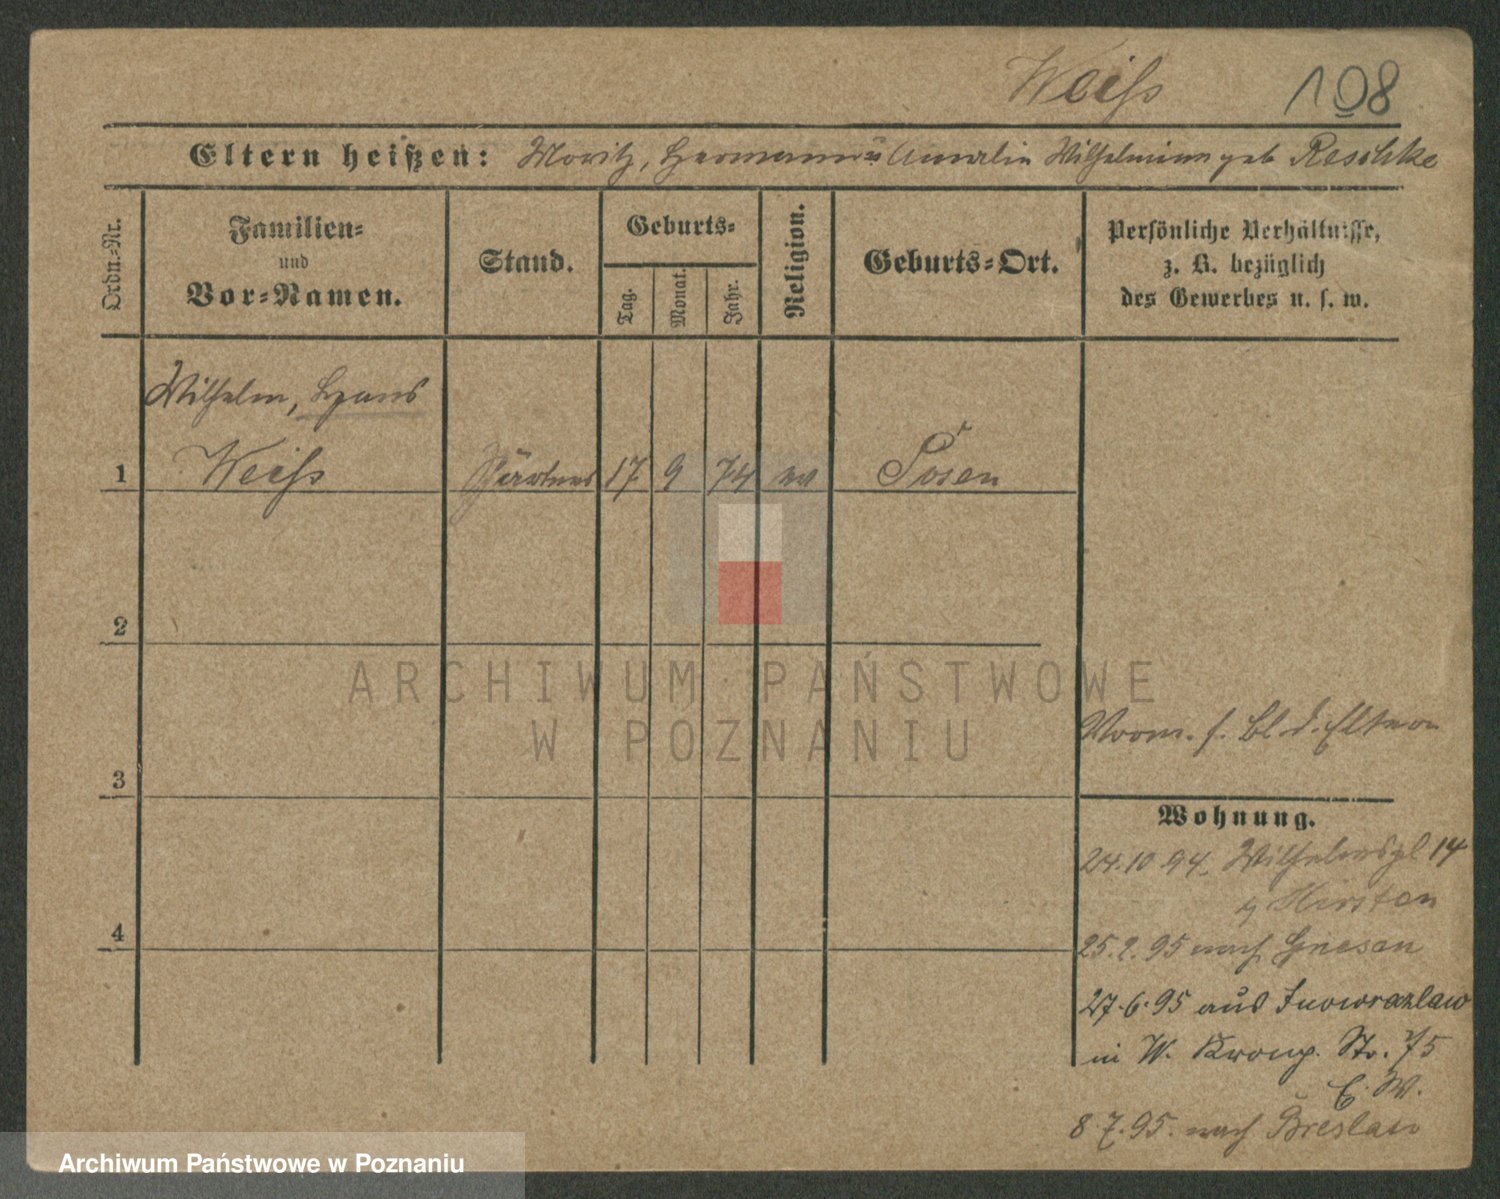 Weiss 108
Eltern heißen: Moritz, Hermann u Amalie Wilhelmine geb Reschke
Ordn.-Nr.
Familien-
und
Vor-Namen.
Stand.
Geburts-
Tag.
Monat.
Jahr.
Religion.
Geburts-Ort.
Persönliche Verhältnisse,
z. B. bezüglich
des Gewerbes u. s. w.
Wilhelm, Hans
1 Weiss Gärtner 17 9 74 ev Posen
2
ARCHIWUM PAŃSTWOWE
W POZNANIU
Vorm. s. Bl. d. Eltern
3
Wohnung.
24.10.94 Wilhelmspl 14
Hirsten
4
25.2.95 nach Gnesen
27.6.95 aus Inowrazlaw
in W. Kronp. Str. 75
E. W.
8.7.95. nach Breslau
Archiwum Państwowe w Poznaniu